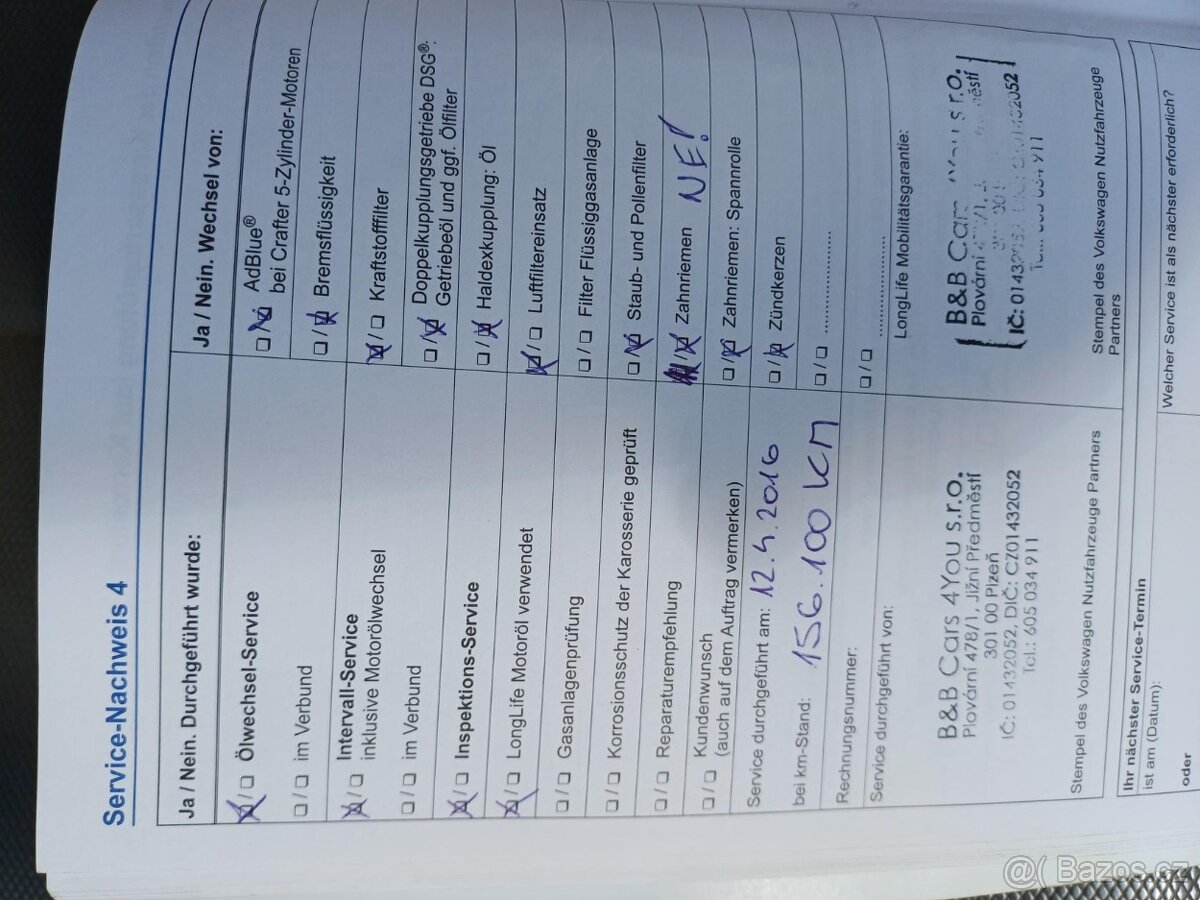 Service-Nachweis 4
Ja / Nein. Durchgeführt wurde:
Ölwechsel-Service
im Verbund
Intervall-Service
inklusive Motorölwechsel
im Verbund
Inspektions-Service
LongLife Motoröl verwendet
Gasanlagenprüfung
Korrosionsschutz der Karosserie geprüft
Reparaturempfehlung
Kundenwunsch
(auch auf dem Auftrag vermerken)
Service durchgeführt am: 12.4.2016
bei km-Stand: 156.100 KM
Rechnungsnummer:
Service durchgeführt von:
B&B Cars 4You s.r.o.
Plovární 478/1, Jižní Předměstí
301 00 Plzeň
IČ: 01432052, DIČ: CZ01432052
Tel.: 605 034 911
Stempel des Volkswagen Nutzfahrzeuge Partners
Ja / Nein. Wechsel von:
AdBlue®
bei Crafter 5-Zylinder-Motoren
Bremsflüssigkeit
Kraftstofffilter
Doppelkupplungsgetriebe DSG®:
Getriebeöl und ggf. Ölfilter
Haldexkupplung: Öl
Luftfiltereinsatz
Filter Flüssiggasanlage
Staub- und Pollenfilter
Zahnriemen NE!
Zahnriemen: Spannrolle
Zündkerzen
LongLife Mobilitätsgarantie:
B&B Cars s.r.o.
Plovární
IČ:
911
Stempel des Volkswagen Nutzfahrzeuge
Partners
Ihr nächster Service-Termin
ist am (Datum):
oder
Welcher Service ist als nächster erforderlich?
@( Bazos.cz